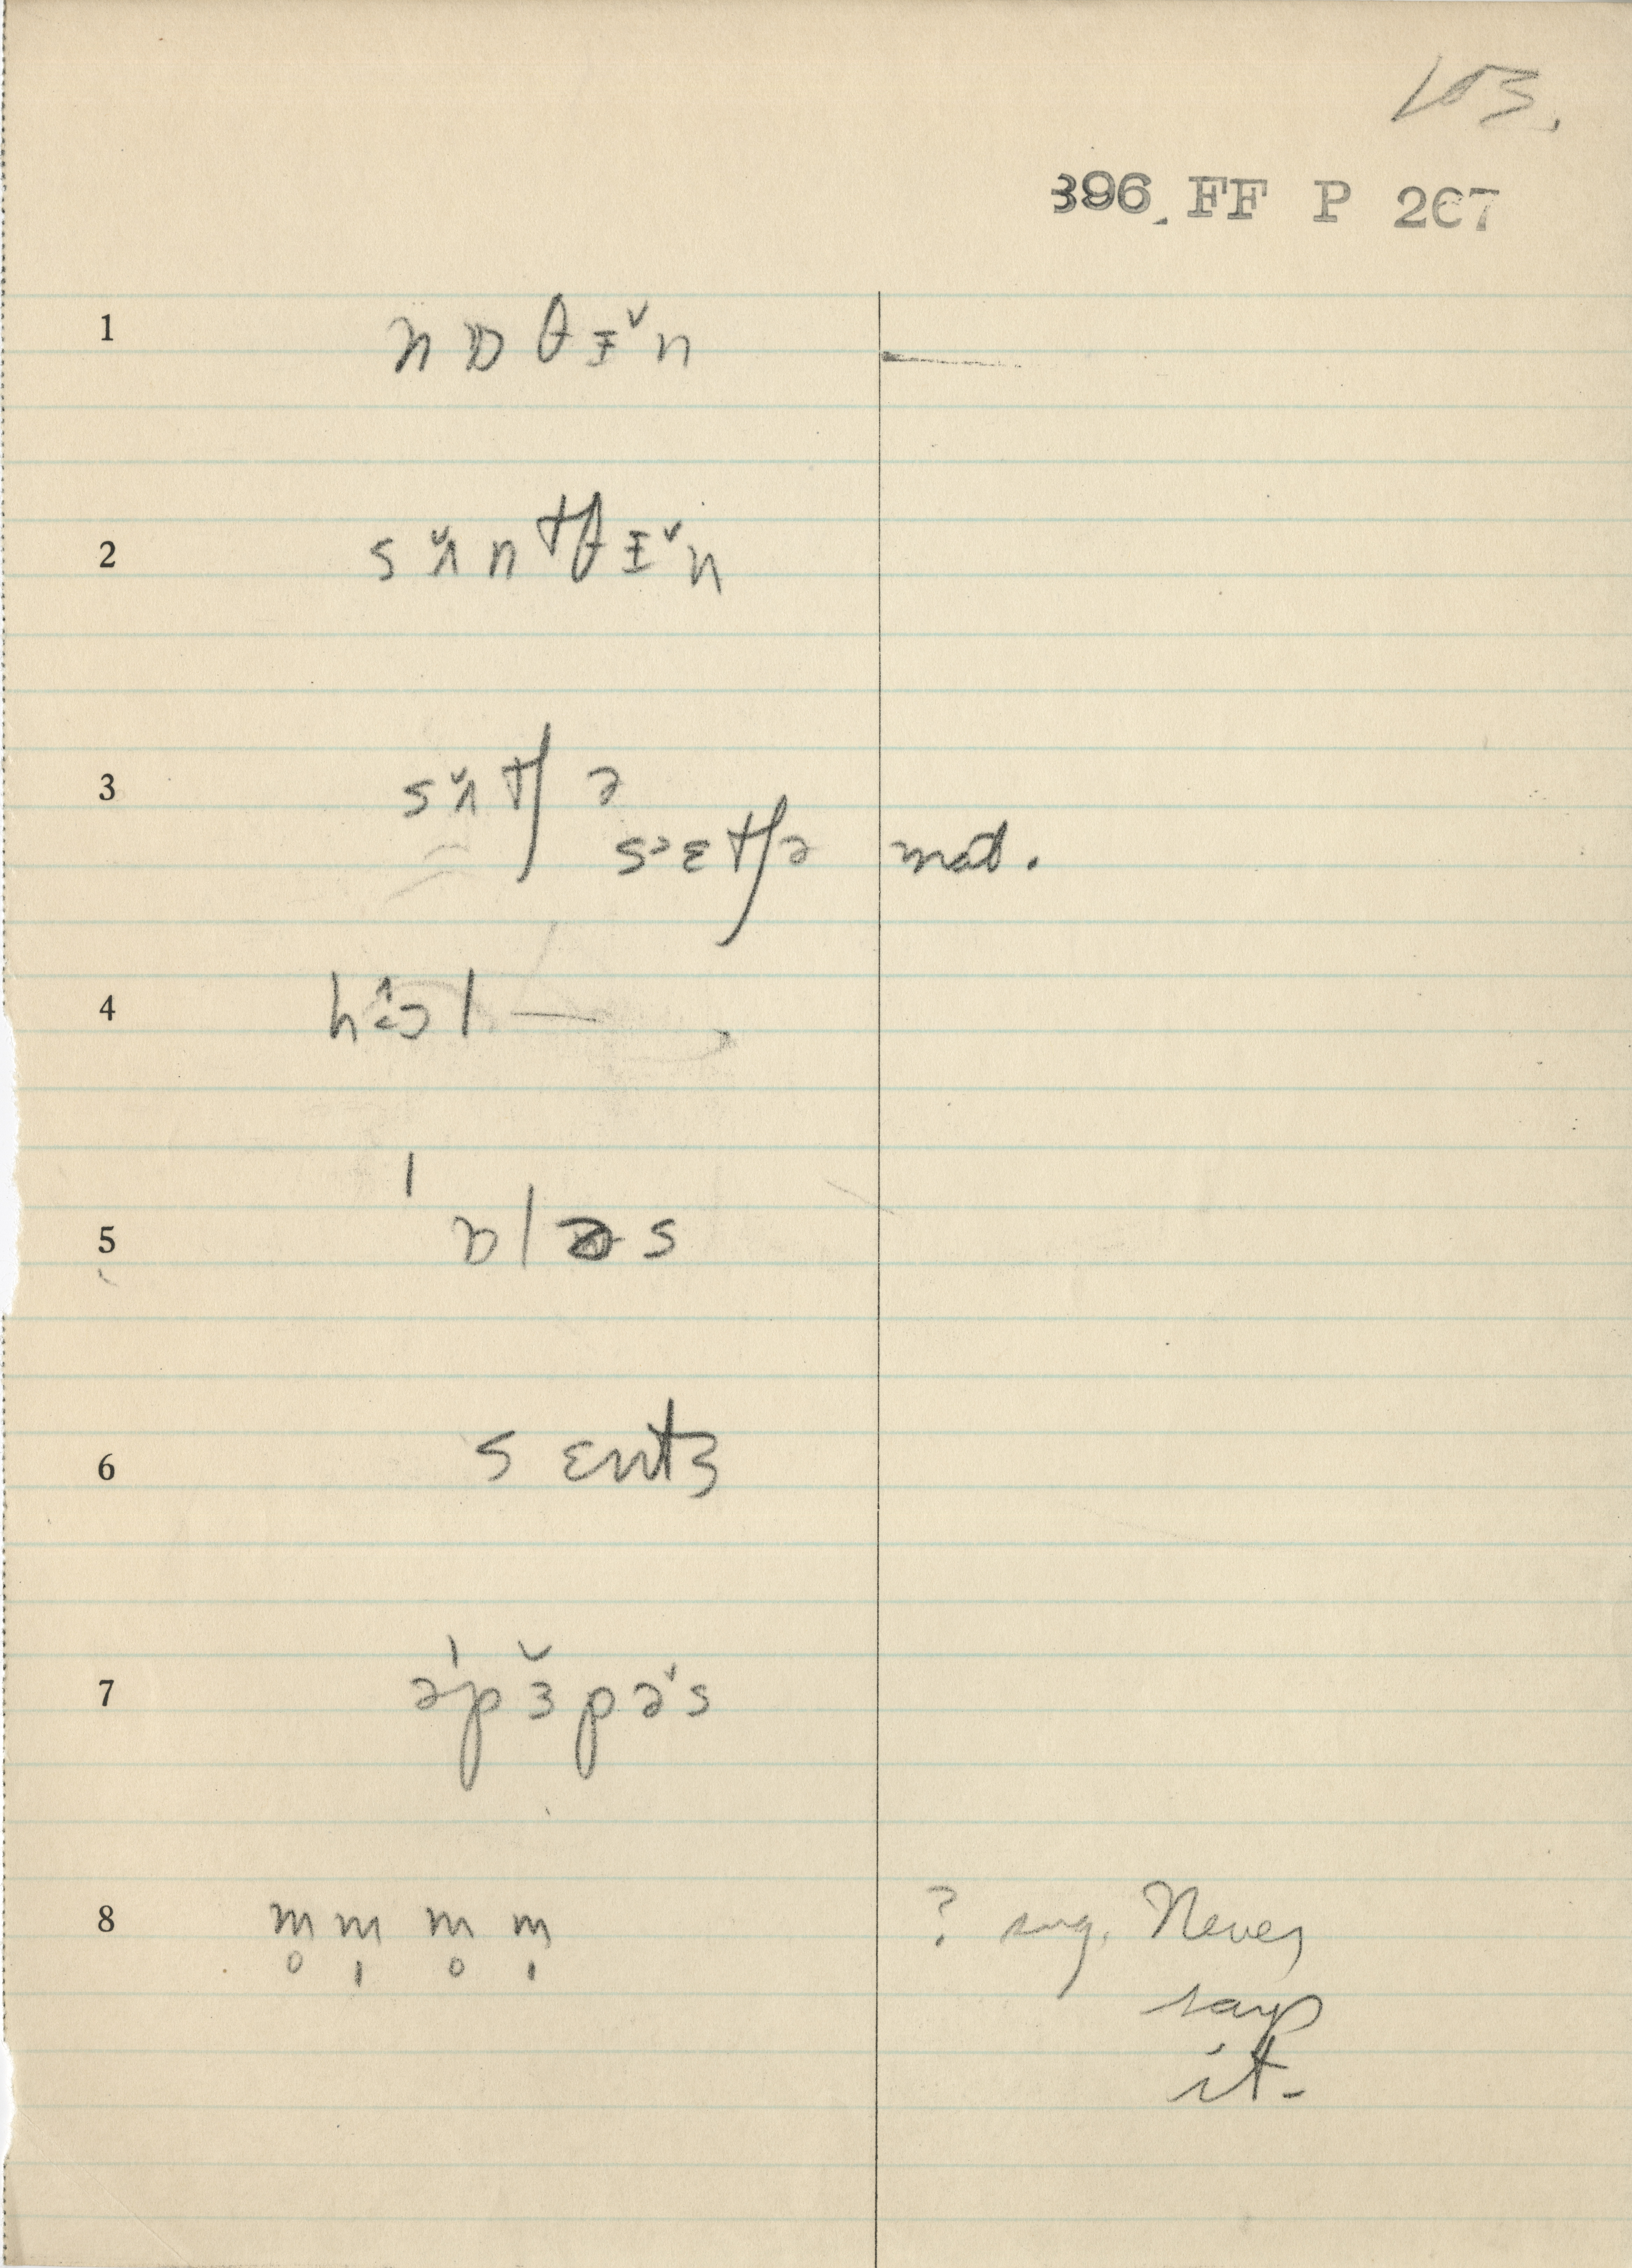 103.
396 FF P 267
1 n ɒ θ ɪ̵ ̌ n
2 s ʌ̌ n tθ ɪ̵ ̌ n
3 s ʌ̌ tʃ ə
sɛtʃə nat.
4 h ɔ l —
5 ˈ ɒ l ə s
6 s ɛntʒ
7 əˈp ɜ̆ p ə̌ s
8 m̥ m̩ m̥ m̩ ? sug. Never
say
it-